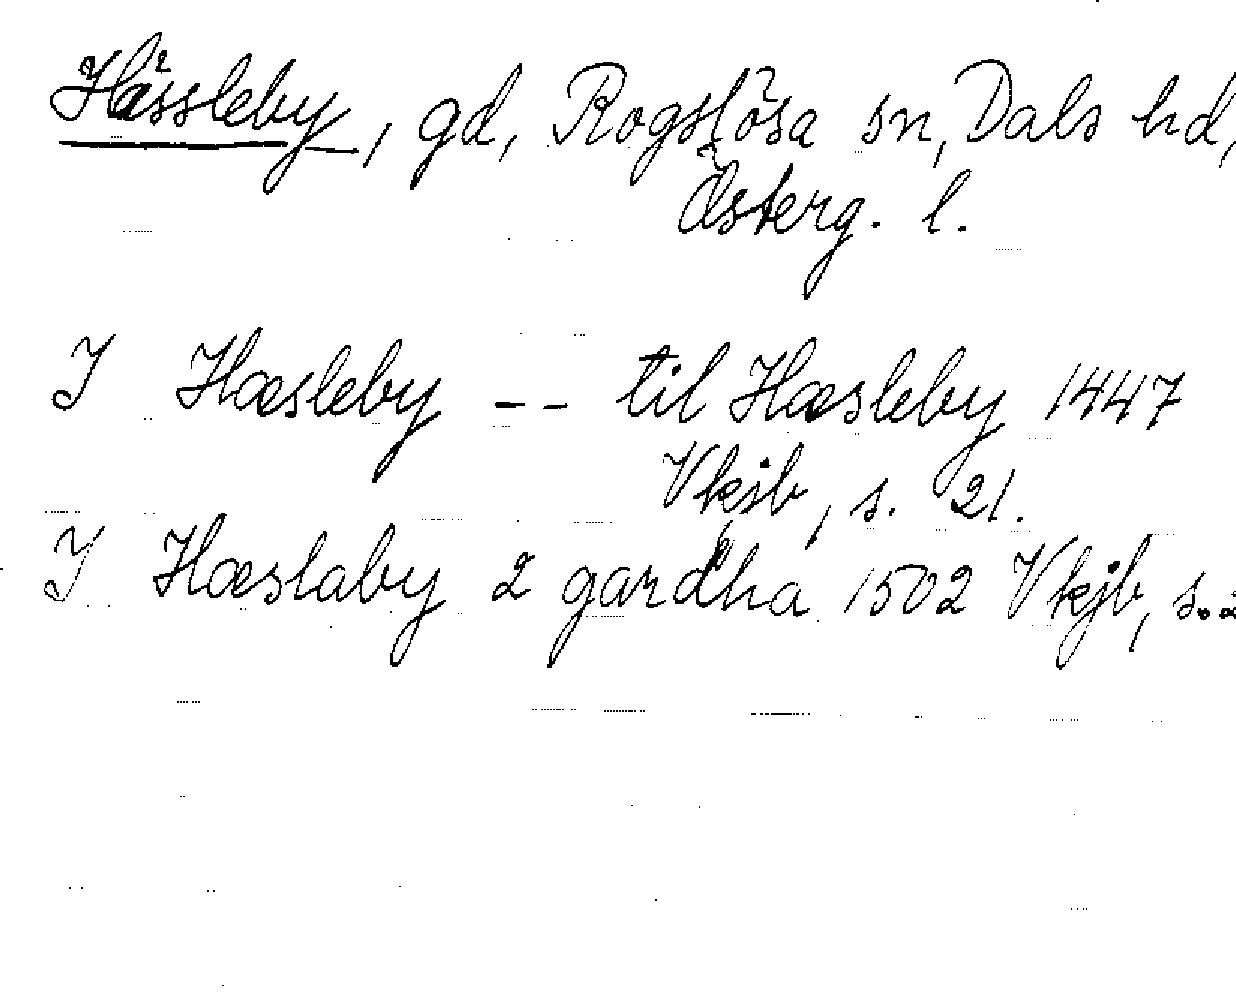 Hässleby, gd, Rogslösa sn, Dals hd,
Österg. l.
I Hæsleby -- til Hæsleby 1447
Vkjb, s. 21.
I Hæslaby 2 gardha 1502 Vkjb, s.